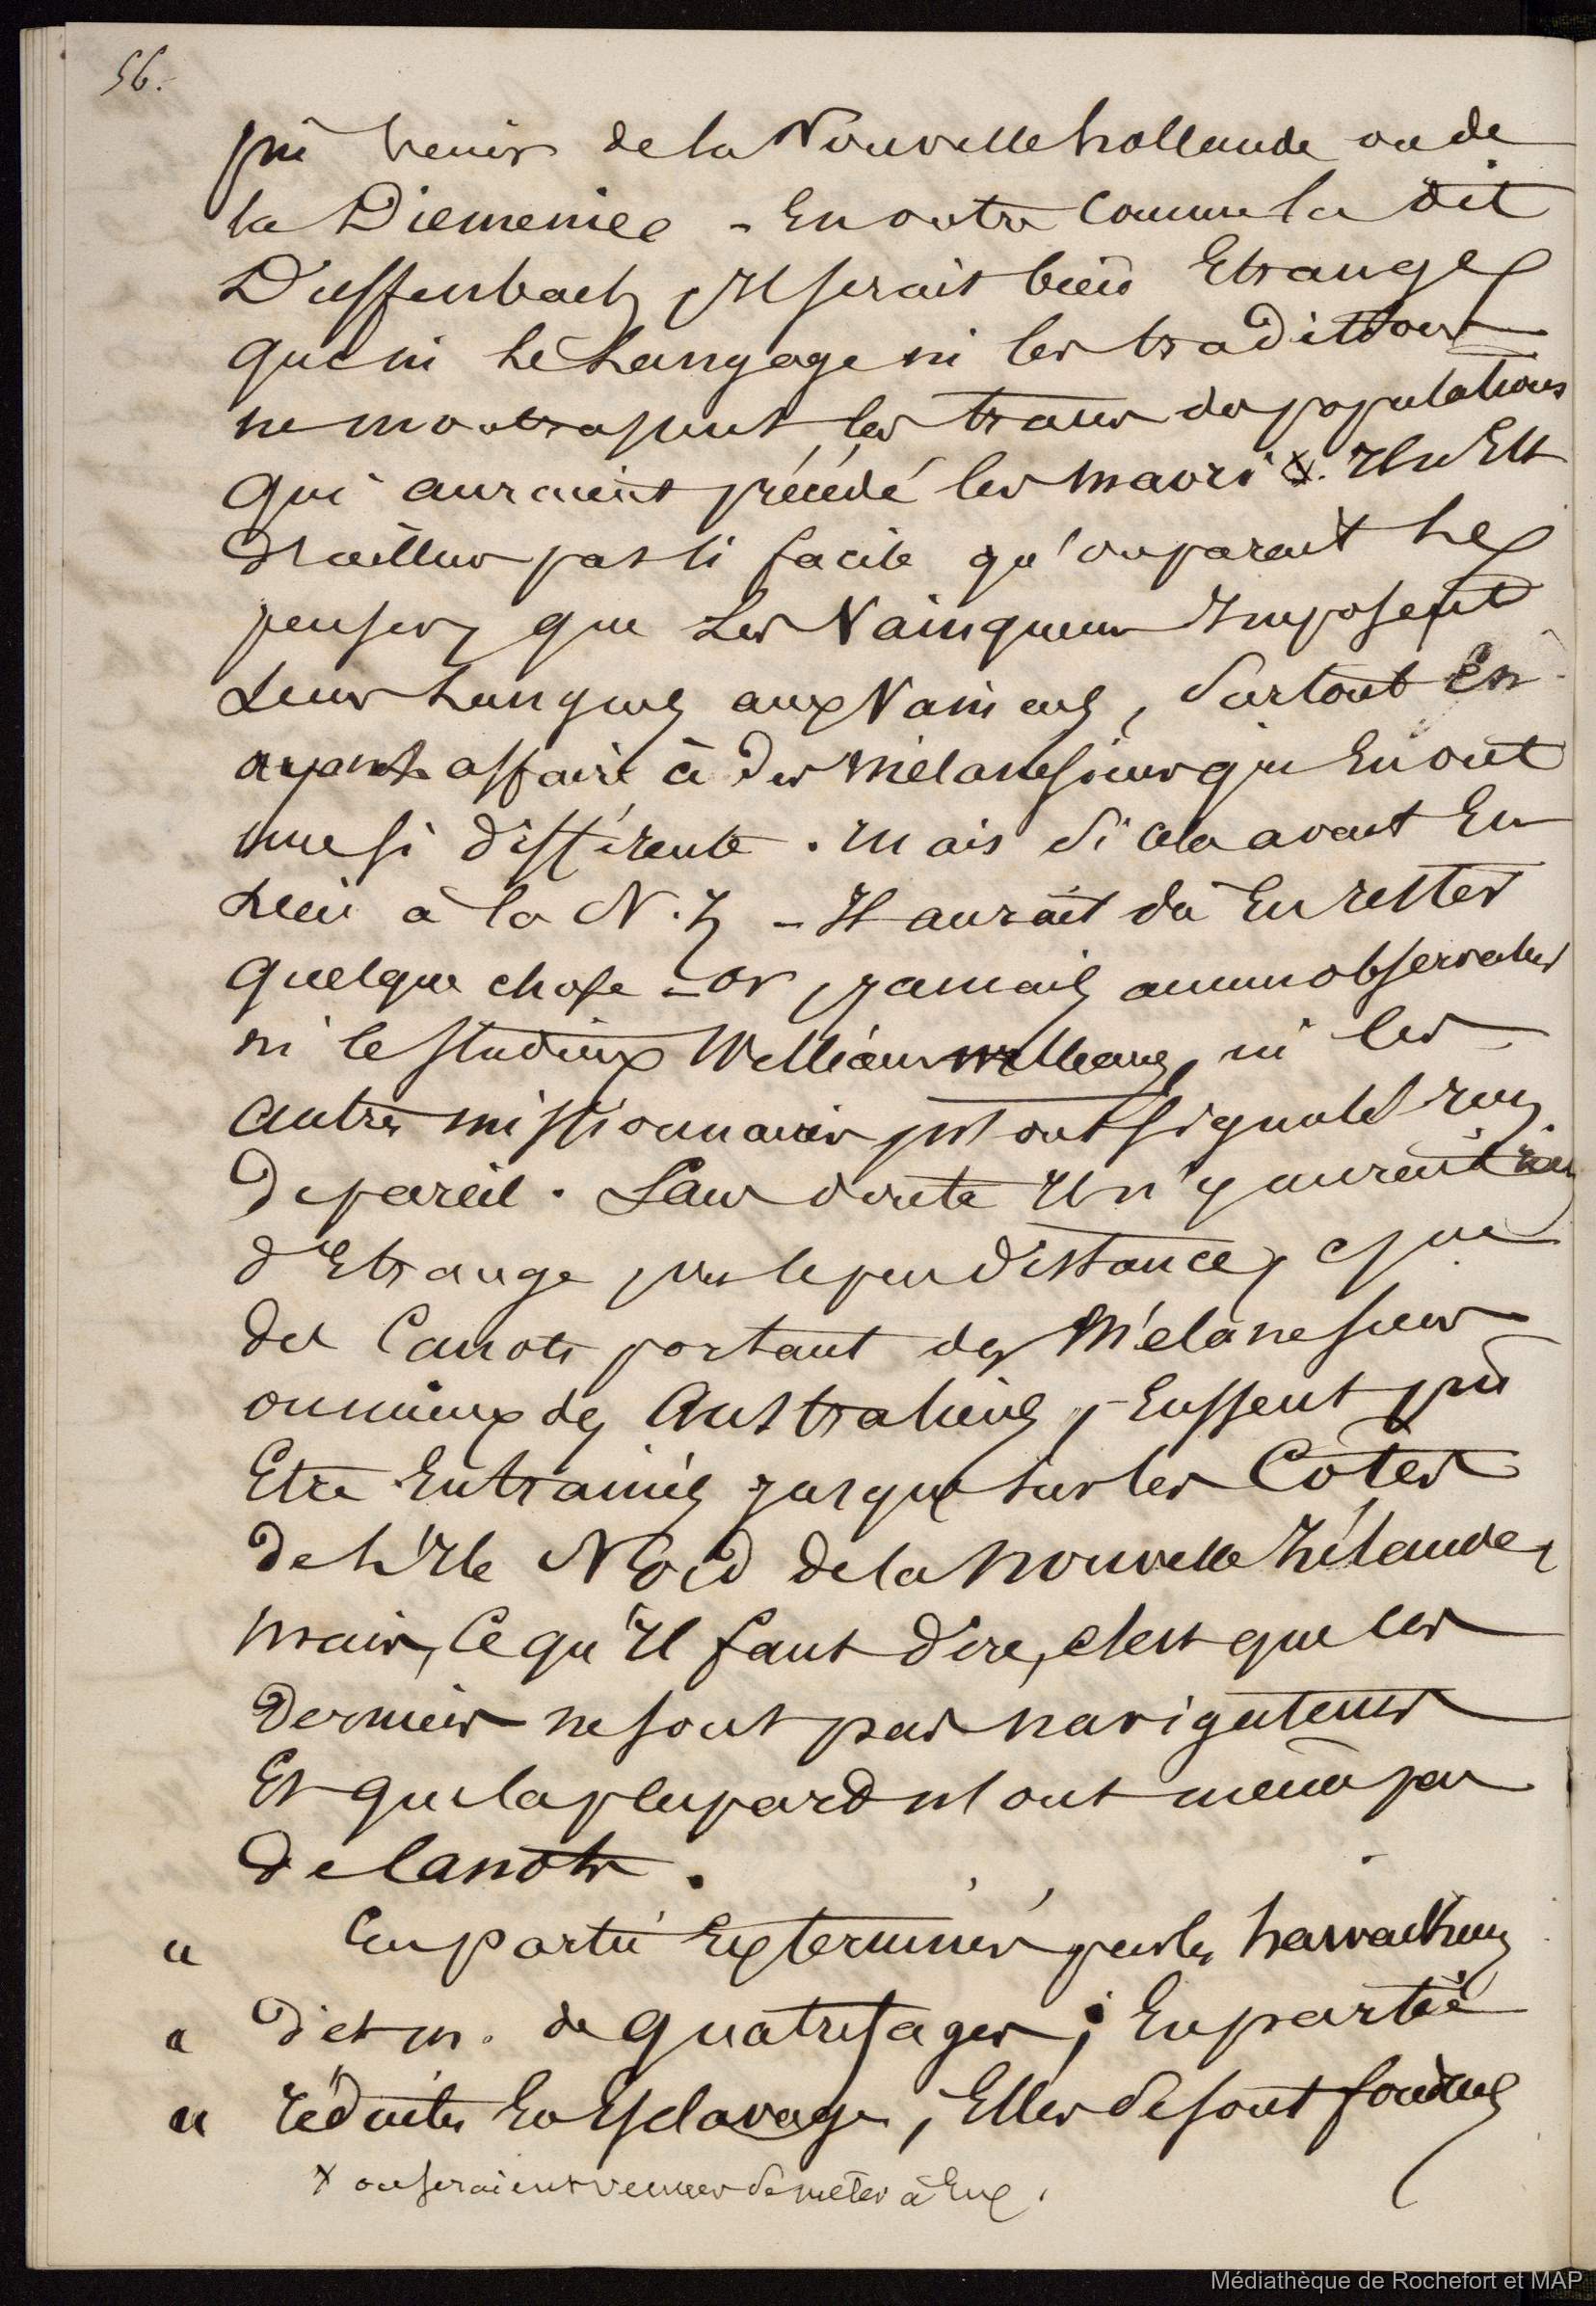 56.
pu venir de la Nouvelle hollande ou de
la Diemenie - En outre comme l'a dit
Dieffenbach, Il serait bien Etrange
que ni le Langage ni les traditions
ne montrassent les traces des populations
qui auraient précédé les maori x. Il n'Est
d'ailleurs pas si facile qu'on parait le
penser, que Les Vainqueurs Imposent
Leurs Langues aux Vaincus, Surtout En
ayant affaire à des mélanésiens qui En ont
une si différente. Mais Si cela avait Eu
Lieu à la N. Z - Il aurait dû En rester
quelque chose - or, jamais aucun observateur
ni le studieux William williams, ni les
autres missionnaires n'ont signalé rien
de pareil. Sans doute Il n'y aurait rien
d'Etrange vu le peu distance, que
des Canots portant des Mélanesiens
ou mieux des Australiens, Eussent pû
Etre Entrainés jusque sur les Côtes
de L'Ile Nord de la Nouvelle Zélande,
mais, Ce qu'Il faut dire, c'est que les
derniers ne sont pas navigateurs
Et que la plupard n'ont même pas
de Canots.
" En partie Exterminés par les hawaikiens
" dit m. de Quatrefages ; En partie
" réduites En Esclavage, Elles Se sont fondues
x ou seraient venues se mêler à Eux.
Médiathèque de Rochefort et MAP